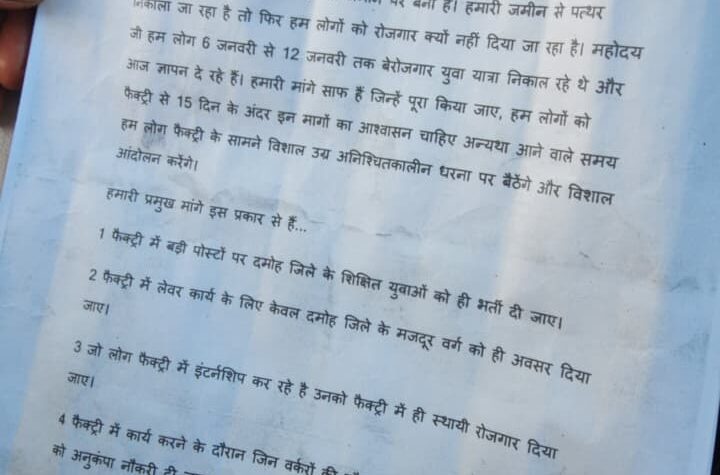 पर बनी है। हमारी जमीन से पत्थर
निकाला जा रहा है तो फिर हम लोगों को रोजगार क्यों नहीं दिया जा रहा है। महोदय
जी हम लोग 6 जनवरी से 12 जनवरी तक बेरोजगार युवा यात्रा निकाल रहे थे और
आज ज्ञापन दे रहे हैं। हमारी मांगे साफ हैं जिन्हें पूरा किया जाए, हम लोगों को
फैक्ट्री से 15 दिन के अंदर इन मागों का आश्वासन चाहिए अन्यथा आने वाले समय
हम लोग फैक्ट्री के सामने विशाल उग्र अनिश्चितकालीन धरना पर बैठेंगे और विशाल
आंदोलन करेंगे।
हमारी प्रमुख मांगे इस प्रकार से हैं...
1 फैक्ट्री में बड़ी पोस्टों पर दमोह जिले के शिक्षित युवाओं को ही भर्ती दी जाए।
2 फैक्ट्री में लेवर कार्य के लिए केवल दमोह जिले के मजदूर वर्ग को ही अवसर दिया
जाए।
3 जो लोग फैक्ट्री में इंटर्नशिप कर रहे है उनको फैक्ट्री में ही स्थायी रोजगार दिया
जाए।
4 फैक्ट्री में कार्य करने के दौरान जिन वर्करों की
को अनुकंपा नौकरी दी